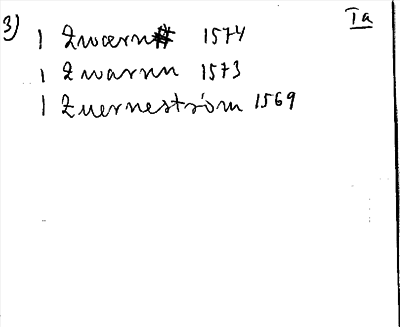 3) Ia
1 Zwærn 1574
1 Zwarnn 1573
1 Zuerneström 1569